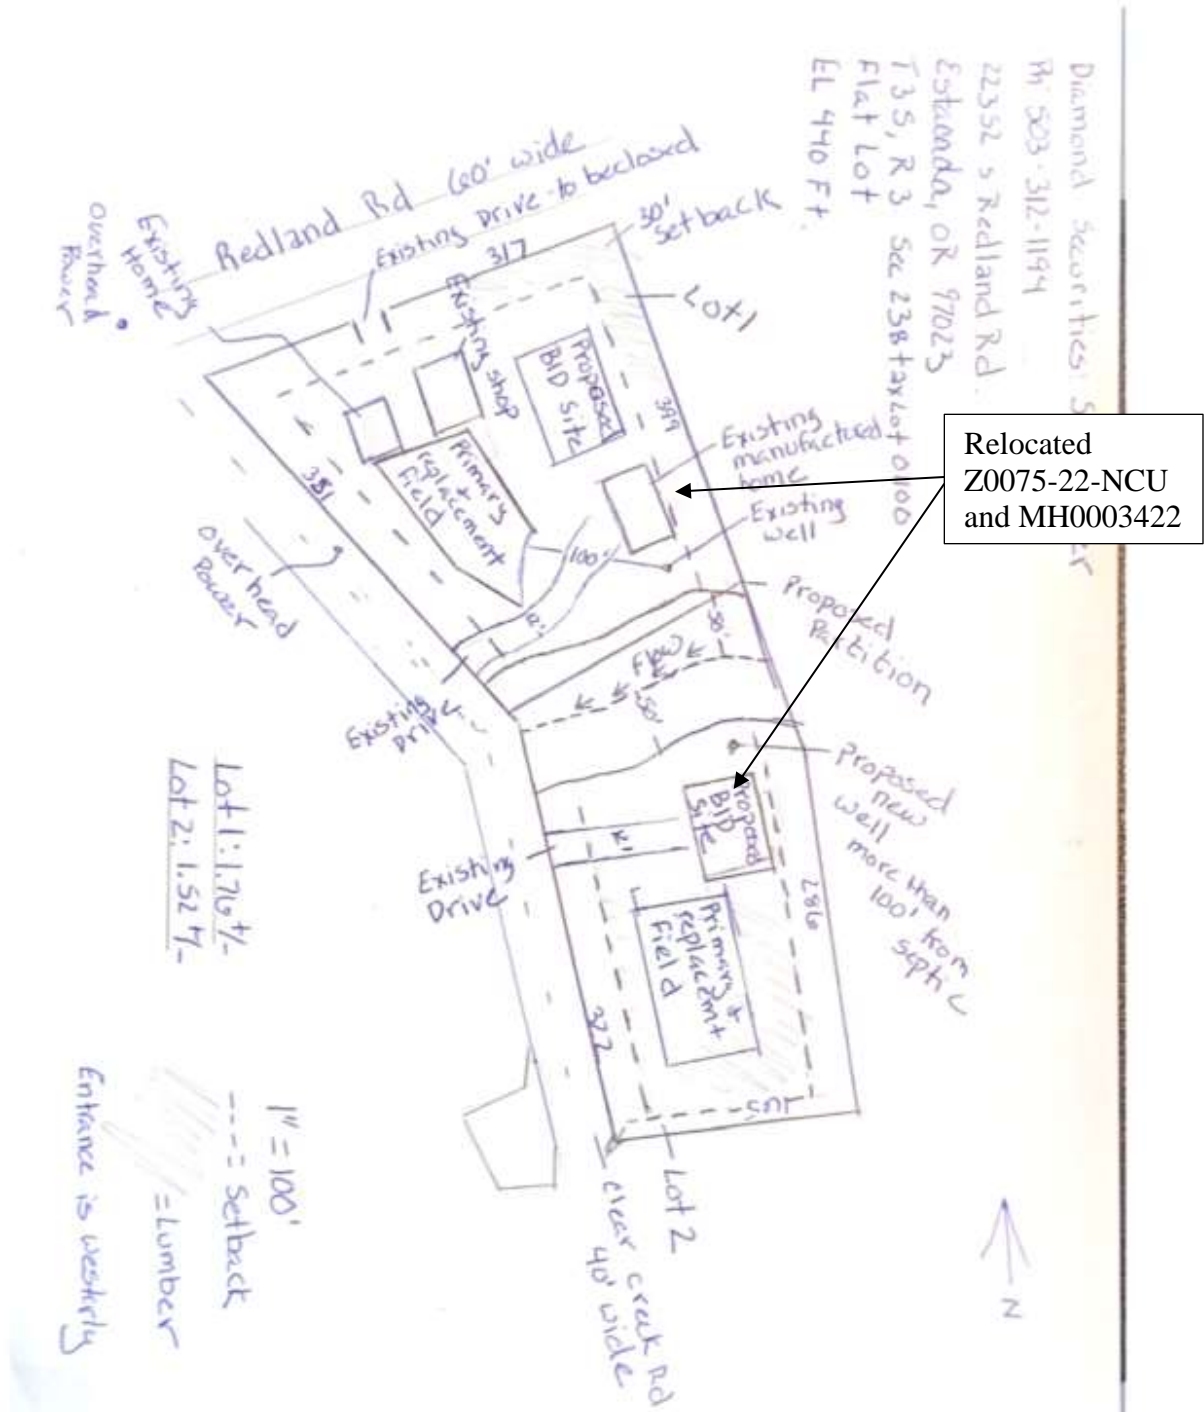 Diamond Securities:
Ph: 503-312-1194
22352 S Redland Rd.
Estacada, OR 97023
T3S, R3 Sec 23B taxLot 0100
Flat Lot
EL 440 Ft.
Redland Rd 60' wide
Existing Drive to be closed
317
30'
Setback
Lot 1
Existing
Home
Overhead
Power
Existing shop
Proposed
BID Site
399
Existing
manufactured
home
Existing
well
Relocated
Z0075-22-NCU
and MH0003422
Primary
+
replacement
Field
381
100'
overhead
Power
12'
Proposed
Partition
50'
Flow
50'
Existing
Drive
Proposed
new
well
more than
100' from
septic
Proposed
BID
Site
12'
Existing
Drive
286
Primary +
replacemt
Field
322
Lot 2
clear creek Rd
40' wide
Lot 1: 1.76 +/-
Lot 2: 1.52 +/-
1" = 100'
---= Setback
= Lumber
Entrance is westerly
N